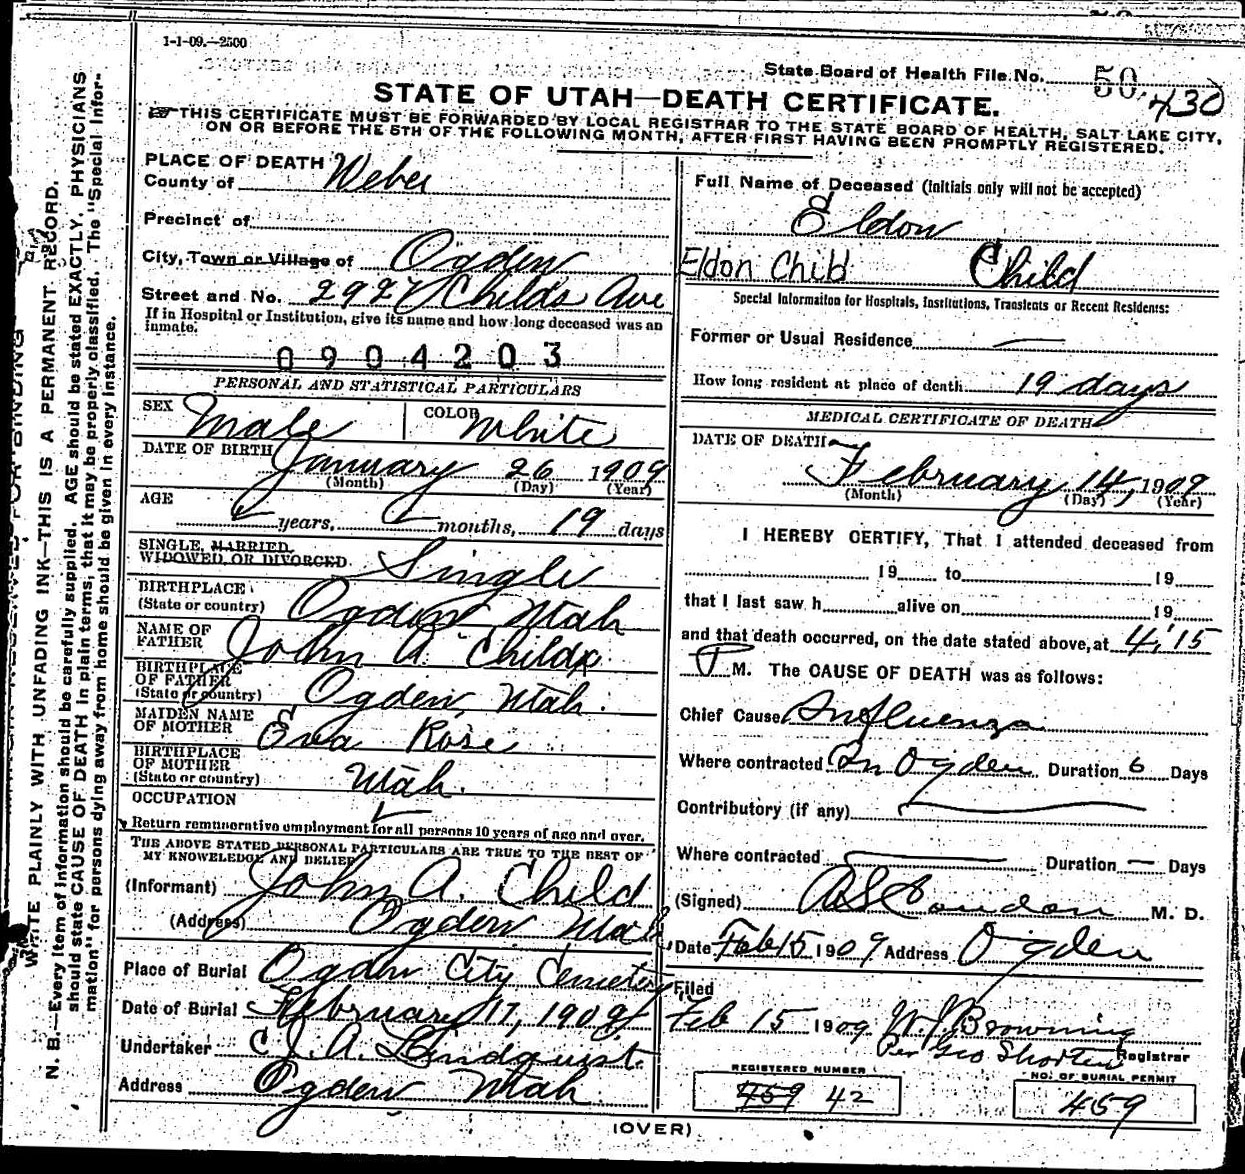 1-1-09.—2500
State Board of Health File No. 50, 430
STATE OF UTAH—DEATH CERTIFICATE.
THIS CERTIFICATE MUST BE FORWARDED BY LOCAL REGISTRAR TO THE STATE BOARD OF HEALTH, SALT LAKE CITY,
ON OR BEFORE THE 5TH OF THE FOLLOWING MONTH, AFTER FIRST HAVING BEEN PROMPTLY REGISTERED.
WRITE PLAINLY WITH UNFADING INK—THIS IS A PERMANENT RECORD.
N. B.—Every item of information should be carefully supplied. AGE should be stated EXACTLY. PHYSICIANS
should state CAUSE OF DEATH in plain terms, that it may be properly classified. The "Special Infor-
mation" for persons dying away from home should be given in every instance.
PLACE OF DEATH
County of Weber
Precinct of
City, Town or Village of Ogden
Street and No. 2927 Childs Ave
If in Hospital or Institution, give its name and how long deceased was an
inmate.
0904203
PERSONAL AND STATISTICAL PARTICULARS
SEX Male COLOR White
DATE OF BIRTH January 26 1909
(Month) (Day) (Year)
AGE
years, months, 19 days
SINGLE, MARRIED,
WIDOWED, OR DIVORCED. Single
BIRTHPLACE
(State or country) Ogden Utah
NAME OF
FATHER John A. Child
BIRTHPLACE
OF FATHER
(State or country) Ogden, Utah.
MAIDEN NAME
OF MOTHER Eva Rose
BIRTHPLACE
OF MOTHER
(State or country) Utah.
OCCUPATION
Return remunerative employment for all persons 10 years of age and over.
THE ABOVE STATED PERSONAL PARTICULARS ARE TRUE TO THE BEST OF
MY KNOWLEDGE AND BELIEF
(Informant) John A. Child
(Address) Ogden Utah
Place of Burial Ogden City Cemetery
Date of Burial February 17, 1909
Undertaker J. A. Lindquist.
Address Ogden Utah
Full Name of Deceased (Initials only will not be accepted)
Eldon
Eldon Child Child
Special Information for Hospitals, Institutions, Transients or Recent Residents:
Former or Usual Residence
How long resident at place of death 19 days
MEDICAL CERTIFICATE OF DEATH
DATE OF DEATH
February 14, 1909
(Month) (Day) (Year)
I HEREBY CERTIFY, That I attended deceased from
19 to 19
that I last saw h alive on 19
and that death occurred, on the date stated above, at 4:15
P M. The CAUSE OF DEATH was as follows:
Chief Cause Influenza
Where contracted In Ogden Duration 6 Days
Contributory (if any)
Where contracted Duration — Days
(Signed) A S Condon M. D.
Date Feb 15 1909 Address Ogden
Filed
Feb 15 1909 W J Browning
Per Geo Shorten Registrar
REGISTERED NUMBER
459 42
NO. OF BURIAL PERMIT
459
(OVER)